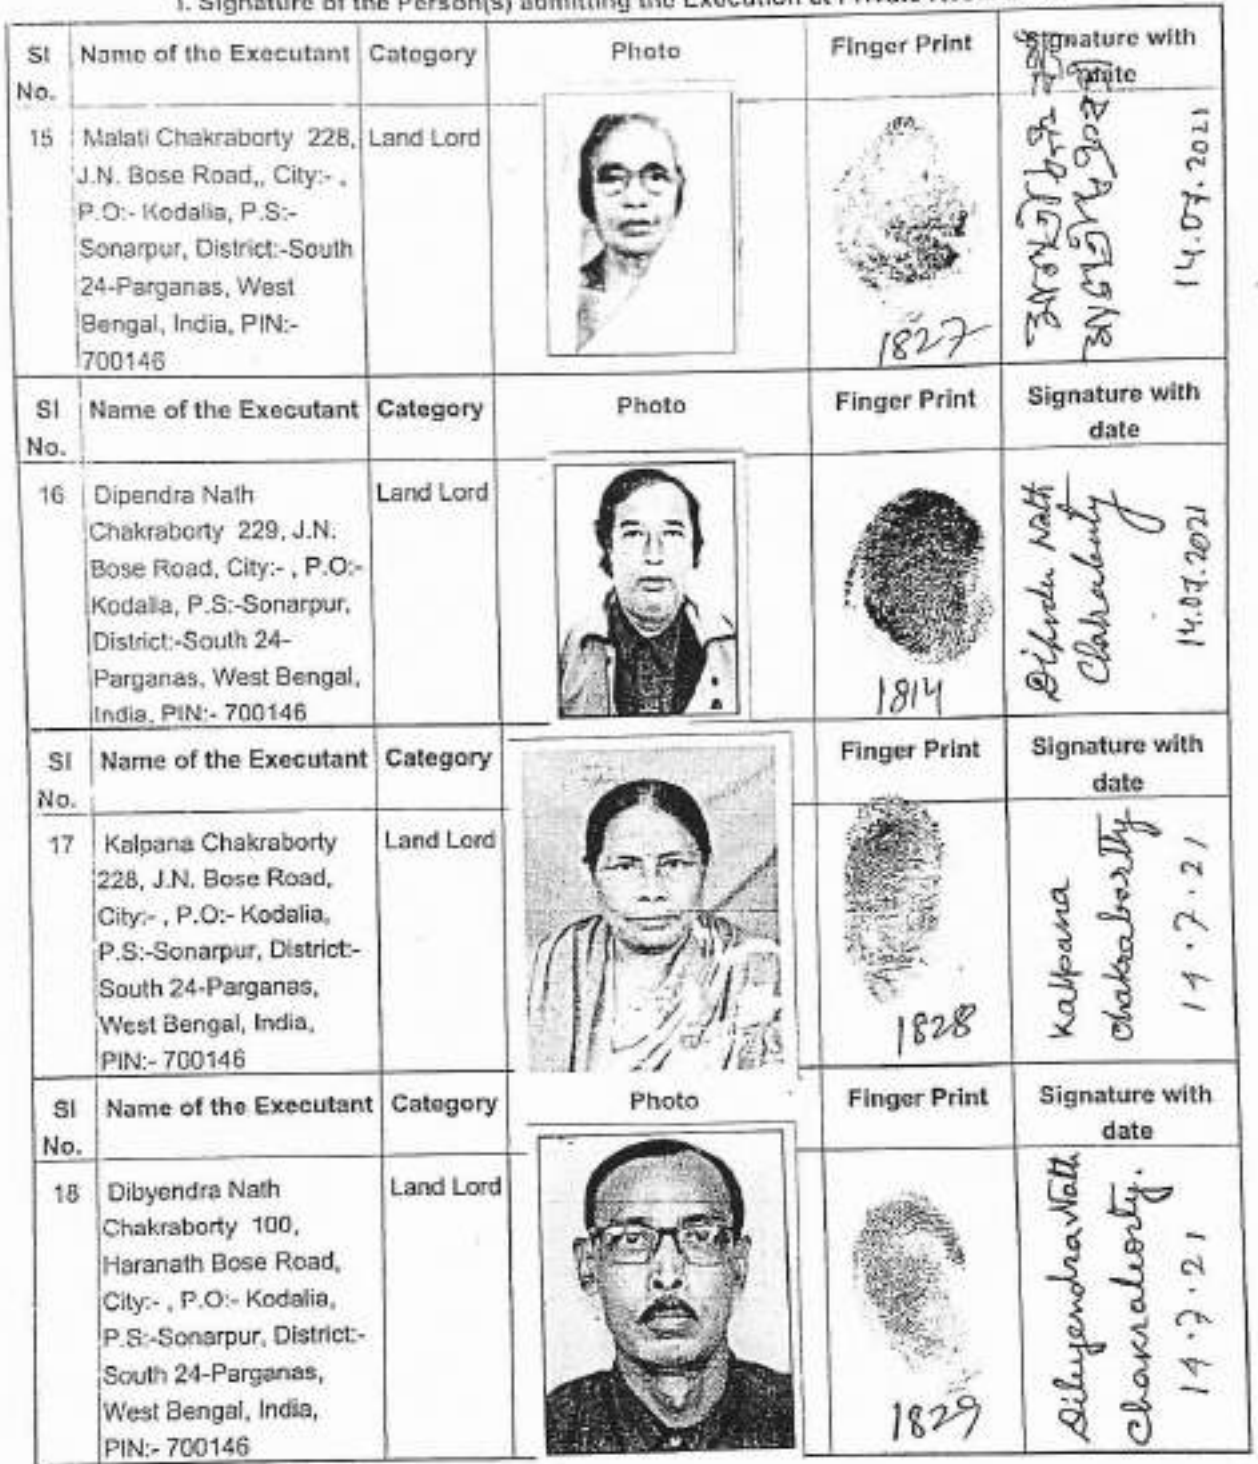 I. Signature of the Person(s) admitting the Execution at Private
Sl No. Name of the Executant Category Photo Finger Print Signature with date
15 Malati Chakraborty 228, Land Lord
J.N. Bose Road,, City:- ,
P.O:- Kodalia, P.S:-
Sonarpur, District:-South
24-Parganas, West
Bengal, India, PIN:-
700146
1827
14.07.2021
Sl No. Name of the Executant Category Photo Finger Print Signature with date
16 Dipendra Nath Land Lord
Chakraborty 229, J.N.
Bose Road, City:- , P.O:-
Kodalia, P.S:-Sonarpur,
District:-South 24-
Parganas, West Bengal,
India, PIN:- 700146
1814
Dipendra Nath
Chakraborty
14.07.2021
Sl No. Name of the Executant Category Finger Print Signature with date
17 Kalpana Chakraborty Land Lord
228, J.N. Bose Road,
City:- , P.O:- Kodalia,
P.S:-Sonarpur, District:-
South 24-Parganas,
West Bengal, India,
PIN:- 700146
1828
Kalpana
Chakraborty
14.7.21
Sl No. Name of the Executant Category Photo Finger Print Signature with date
18 Dibyendra Nath Land Lord
Chakraborty 100,
Haranath Bose Road,
City:- , P.O:- Kodalia,
P.S:-Sonarpur, District:-
South 24-Parganas,
West Bengal, India,
PIN:- 700146
1829
Dibyendra Nath
Chakraborty.
14.7.21